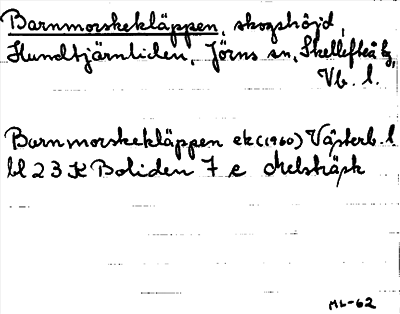 Barnmorskekläppen, skogshöjd,
Hundtjärnliden, Jörns sn, Skellefteå tg,
Vb. l.
Barnmorskekläppen ek (1960) Västerb. l
bl 23 K Boliden 7 e Melsträsk
ML-62